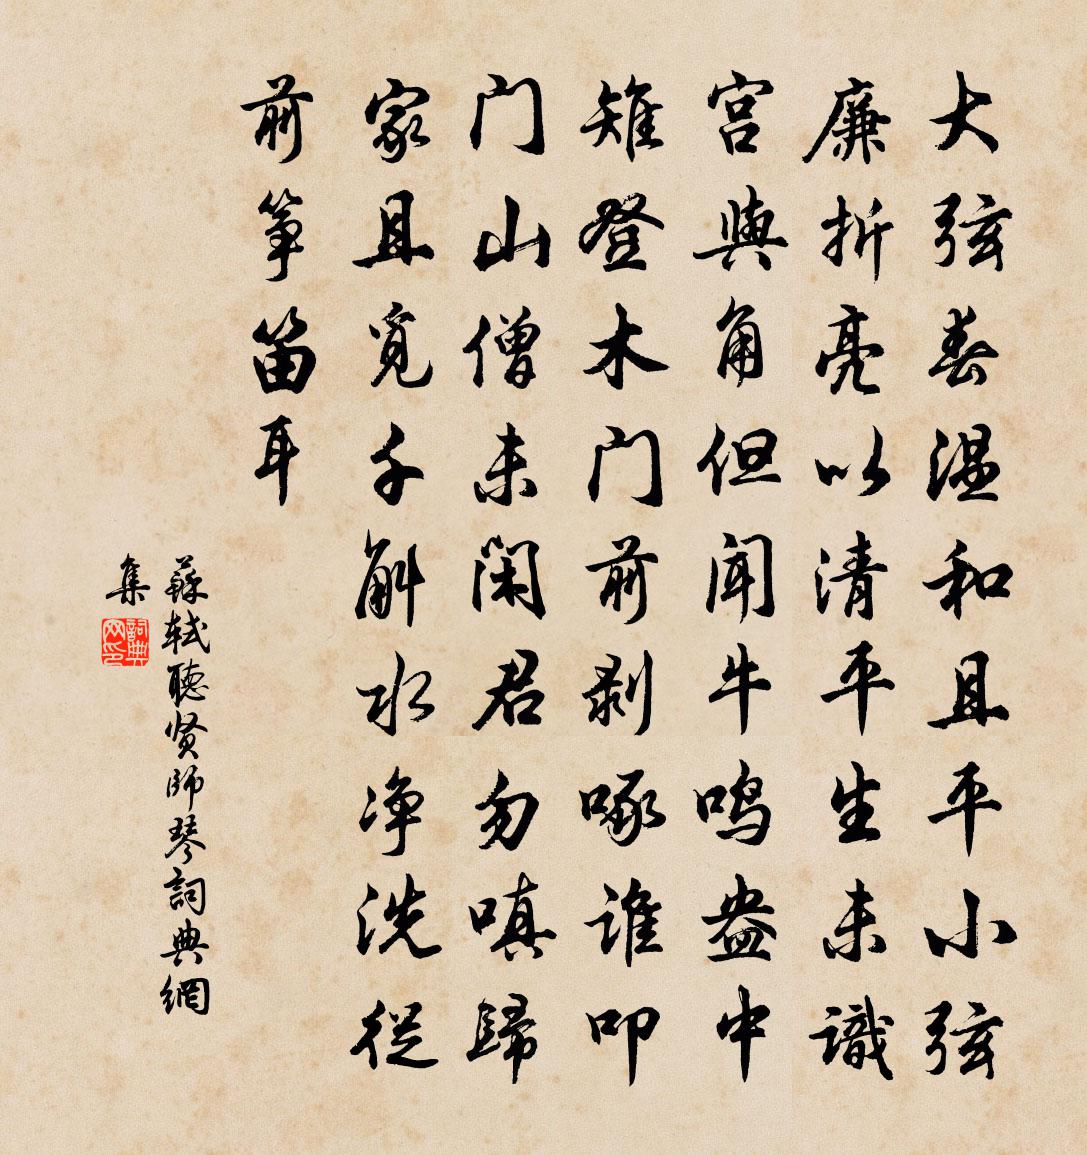 大弦春温和且平小弦
廉折亮以清平生未識
宫與角但闻牛鸣盎中
雉登木门前剥啄谁叩
门山僧未闲君勿嗔歸
家且觅千斛水净洗從
前筝笛耳
蘇軾聴贤師琴詞典網
集
詞典网印